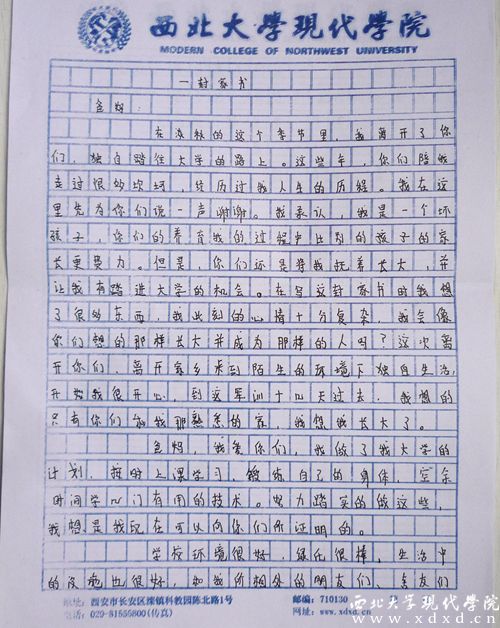 西北大學现代學院
MODERN COLLEGE OF NORTHWEST UNIVERSITY
一封家书
爸妈:
在凉秋的这个季节里,我离开了你
们,独自踏往大学的路上。这些年,你们陪我
走过很多坎坷,经历过我人生的历程。我在这
里先为你们说一声谢谢。我承认,我是一个坏
孩子,你们的养育我的过程中比别的孩子的家
长更费力。但是,你们还是将我抚养长大,并
让我有踏进大学的机会。在写这封家书时我想
了很多东西,我此刻的心情十分复杂。我会像
你们想的那样长大并成为那样的人吗?这次离
开你们,离开家乡来到陌生的环境下独自生活,
开始我很开心,到这军训十几天过去,我想的
只有你们和我那熟悉的家,我想我长大了。
爸妈,我爱你们,我做了我大学的
计划,按时上课学习,锻炼自己的身体,空余
时间学几门有用的技术。努力踏实的做这些,
我想是我现在可以向你们所证明的。
学校环境很好,绿化很棒,生活中
的设施也很好,和我所相处的朋友们、室友们
地址:西安市长安区滦镇科教园陈北路1号
邮编:710130
电话:029-81555800(传真)
网址:www.xdxd.cn
西北大学现代学院
www.xdxd.cn